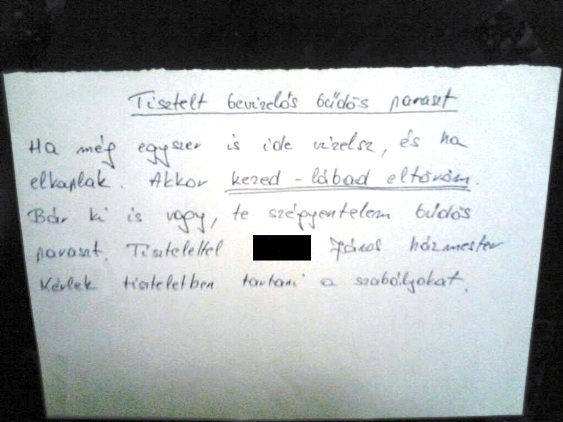 Tisztelt bevizelős büdös paraszt
Ha még egyszer is ide vizelsz, és ha
elkaplak. Akkor kezed-lábad eltöröm.
Bár ki is vagy, te szégyentelem büdös
paraszt. Tisztelettel János házmester
Kérlek tiszteletben tartani a szabályokat.